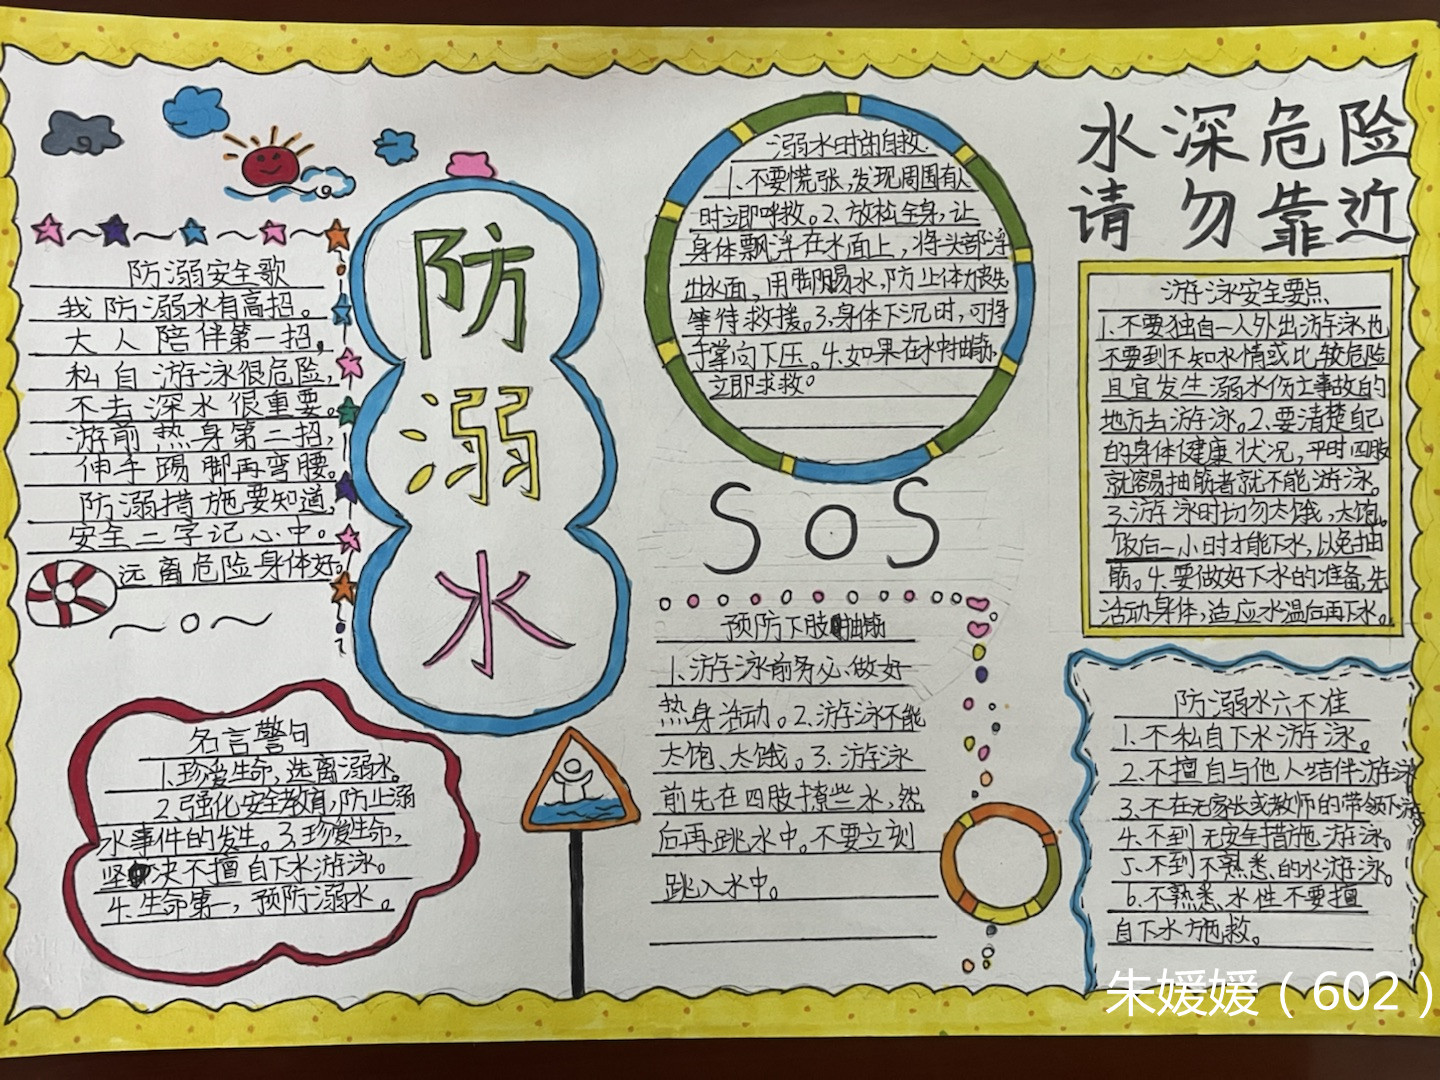 防溺安全歌
我防溺水有高招。
大人陪伴第一招,
私自游泳很危险,
不去深水很重要。
游前热身第二招,
伸手踢脚再弯腰。
防溺措施要知道,
安全二字记心中。
远离危险身体好。
防
溺
水
名言警句
1.珍爱生命,远离溺水。
2.强化安全教育,防止溺
水事件的发生。3.珍爱生命,
坚决不擅自下水游泳。
4.生命第一,预防溺水。
溺水时的自救.
1.不要慌张,发现周围有人
时立即呼救。2.放松全身,让
身体飘浮在水面上,将头部浮
出水面,用脚踢水,防止体力丧失
等待救援。3.身体下沉时,可将
手掌向下压。4.如果在水中抽筋,
立即求救。
SOS
预防下肢抽筋
1.游泳前务必做好
热身活动。2.游泳不能
太饱、太饿。3.游泳
前先在四肢撩些水,然
后再跳水中。不要立刻
跳入水中。
水深危险
请勿靠近
游泳安全要点
1.不要独自一人外出游泳,也
不要到不知水情或比较危险
且宜发生溺水伤亡事故的
地方去游泳。2.要清楚自己
的身体健康状况,平时四肢
就容易抽筋者就不能游泳。
3.游泳时切勿太饿,太饱。
饭后一小时才能下水,以免抽
筋。4.要做好下水的准备,先
活动身体,适应水温后再下水。
防溺水六不准
1.不私自下水游泳。
2.不擅自与他人结伴游泳
3.不在无家长或教师的带领下游
4.不到无安全措施游泳。
5.不到不熟悉的水游泳。
6.不熟悉水性不要擅
自下水施救。
朱媛媛(602)